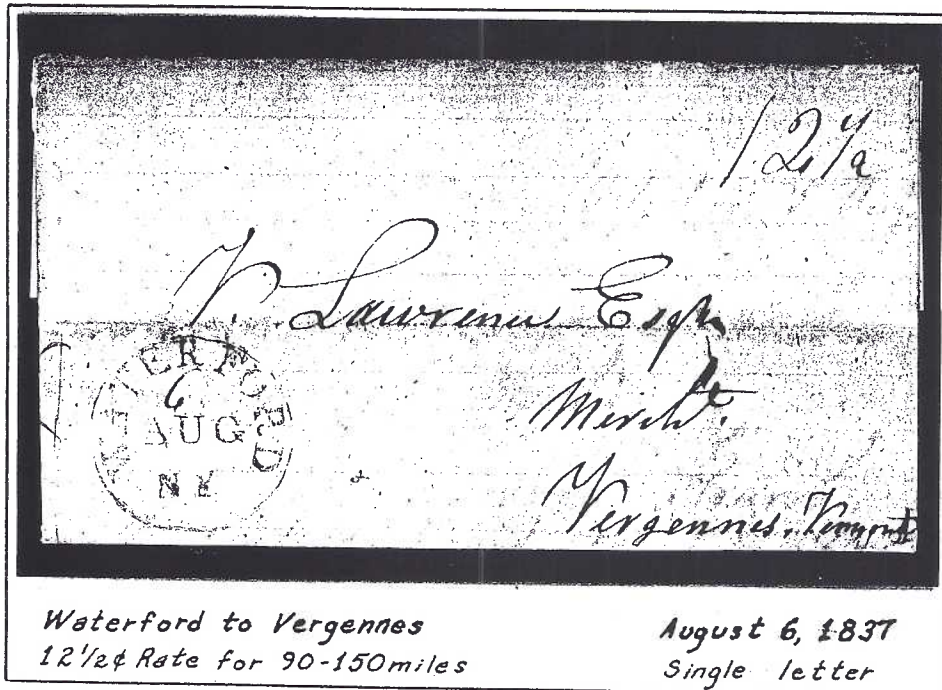 12 1/2
V. Lawrence Esqr
Mercht.
Vergennes, Vermont
WATERFORD
6
AUG
NY
Waterford to Vergennes
12 1/2¢ Rate for 90-150 miles
August 6, 1837
Single letter